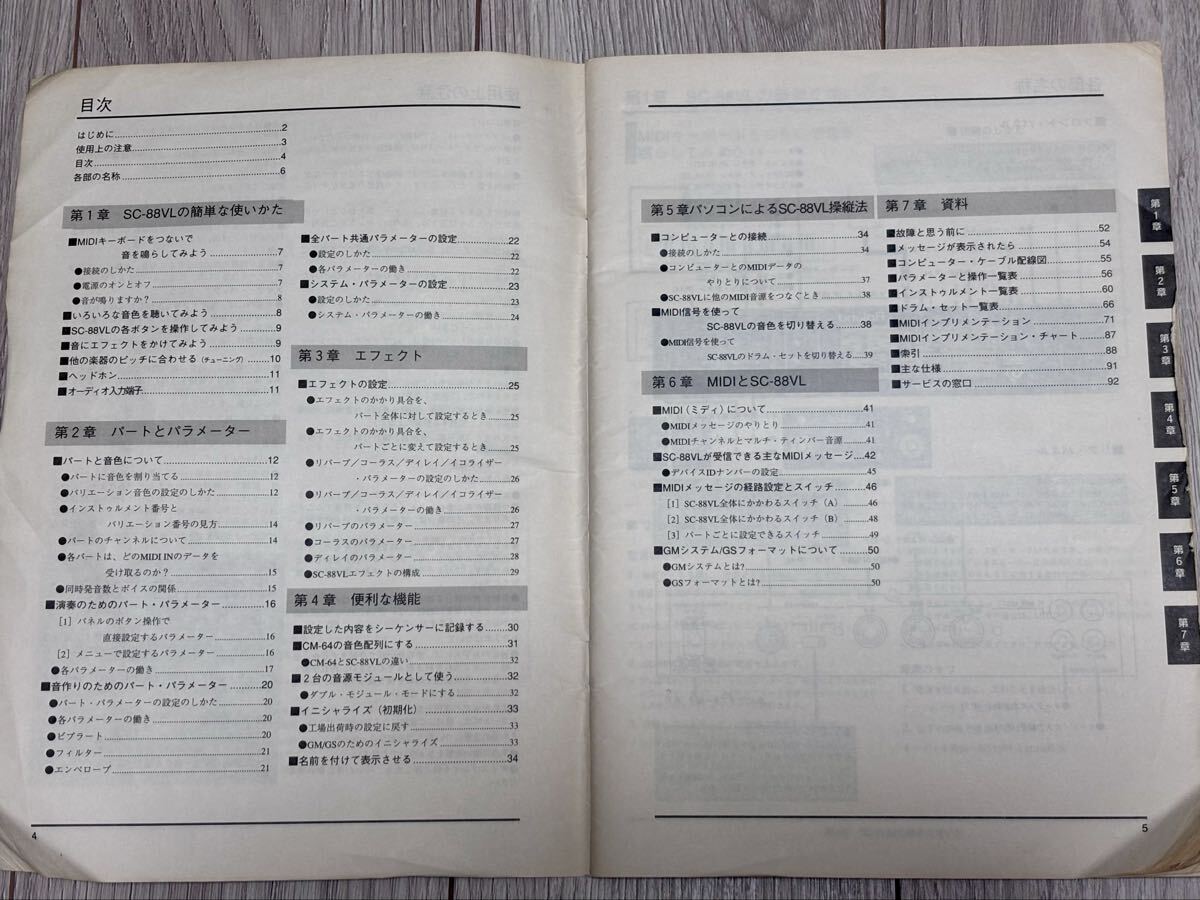 目次
はじめに 2
使用上の注意 3
目次 4
各部の名称 6
第1章 SC-88VLの簡単な使いかた
■MIDIキーボードをつないで
音を鳴らしてみよう 7
●接続のしかた 7
●電源のオンとオフ 7
●音が鳴りますか? 8
■いろいろな音色を聴いてみよう 8
■SC-88VLの各ボタンを操作してみよう 9
■音にエフェクトをかけてみよう 9
■他の楽器のピッチに合わせる(チューニング) 10
■ヘッドホン 11
■オーディオ入力端子 11
第2章 パートとパラメーター
■パートと音色について 12
●パートに音色を割り当てる 12
●バリエーション音色の設定のしかた 12
●インストゥルメント番号と
バリエーション番号の見方 14
●パートのチャンネルについて 14
●各パートは、どのMIDI INのデータを
受け取るのか? 15
●同時発音数とボイスの関係 15
■演奏のためのパート・パラメーター 16
[1] パネルのボタン操作で
直接設定するパラメーター 16
[2] メニューで設定するパラメーター 16
●各パラメーターの働き 17
■音作りのためのパート・パラメーター 20
●パート・パラメーターの設定のしかた 20
●各パラメーターの働き 20
●ビブラート 20
●フィルター 21
●エンベロープ 21
■全パート共通パラメーターの設定 22
●設定のしかた 22
●各パラメーターの働き 22
■システム・パラメーターの設定 23
●設定のしかた 23
●システム・パラメーターの働き 24
第3章 エフェクト
■エフェクトの設定 25
●エフェクトのかかり具合を、
パート全体に対して設定するとき 25
●エフェクトのかかり具合を、
パートごとに変えて設定するとき 25
●リバーブ/コーラス/ディレイ/イコライザー
・パラメーターの設定のしかた 26
●リバーブ/コーラス/ディレイ/イコライザー
・パラメーターの働き 26
●リバーブのパラメーター 27
●コーラスのパラメーター 27
●ディレイのパラメーター 28
●SC-88VLエフェクトの構成 29
第4章 便利な機能
■設定した内容をシーケンサーに記録する 30
■CM-64の音色配列にする 31
●CM-64とSC-88VLの違い 32
■2台の音源モジュールとして使う 32
●ダブル・モジュール・モードにする 32
■イニシャライズ(初期化) 33
●工場出荷時の設定に戻す 33
●GM/GSのためのイニシャライズ 33
■名前を付けて表示させる 34
4
第5章パソコンによるSC-88VL操縦法
■コンピューターとの接続 34
●接続のしかた 34
●コンピューターとのMIDIデータの
やりとりについて 37
●SC-88VLに他のMIDI音源をつなぐとき 38
■MIDI信号を使って
SC-88VLの音色を切り替える 38
●MIDI信号を使って
SC-88VLのドラム・セットを切り替える 39
第6章 MIDIとSC-88VL
■MIDI(ミディ)について 41
●MIDIメッセージのやりとり 41
●MIDIチャンネルとマルチ・ティンバー音源 41
■SC-88VLが受信できる主なMIDIメッセージ 42
●デバイスIDナンバーの設定 45
■MIDIメッセージの経路設定とスイッチ 46
[1] SC-88VL全体にかかわるスイッチ(A) 46
[2] SC-88VL全体にかかわるスイッチ(B) 48
[3] パートごとに設定できるスイッチ 49
■GMシステム/GSフォーマットについて 50
●GMシステムとは? 50
●GSフォーマットとは? 50
第7章 資料
■故障と思う前に 52
■メッセージが表示されたら 54
■コンピューター・ケーブル配線図 55
■パラメーターと操作一覧表 56
■インストゥルメント一覧表 60
■ドラム・セット一覧表 66
■MIDIインプリメンテーション 71
■MIDIインプリメンテーション・チャート 87
■索引 88
■主な仕様 91
■サービスの窓口 92
第1章
第2章
第3章
第4章
第5章
第6章
第7章
5